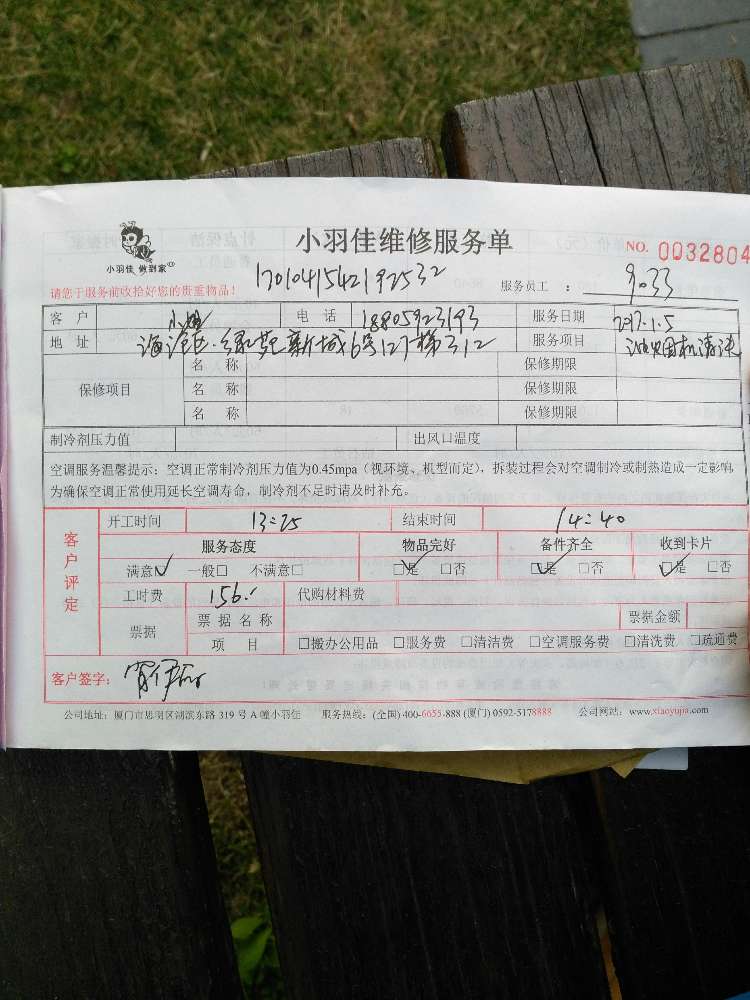 小羽佳维修服务单
NO. 0032804
小羽佳 做到家
请您于服务前收拾好您的贵重物品！
1701041542192532
服务员工： 9033
客户 小姐 电话 18805923193 服务日期 2017.1.5
地址 海沧区·绿苑新城6号127梯312 服务项目 油烟机清洗
保修项目 名称 保修期限
名称 保修期限
名称 保修期限
制冷剂压力值 出风口温度
空调服务温馨提示：空调正常制冷剂压力值为0.45mpa（视环境、机型而定），拆装过程会对空调制冷或制热造成一定影响
为确保空调正常使用延长空调寿命，制冷剂不足时请及时补充。
客户评定
开工时间 13:25 结束时间 14:40
服务态度 物品完好 备件齐全 收到卡片
满意☑ 一般□ 不满意□ ☑是 □否 ☑是 □否 ☑是 □否
工时费 156.- 代购材料费
票据 票据名称 票据金额
项目 □搬办公用品 □服务费 □清洁费 □空调服务费 □清洗费 □疏通费
客户签字：
公司地址：厦门市思明区湖滨东路 319 号 A 幢小羽佳 服务热线：(全国) 400-6655-888 (厦门) 0592-5178888 公司网站：www.xiaoyujia.com